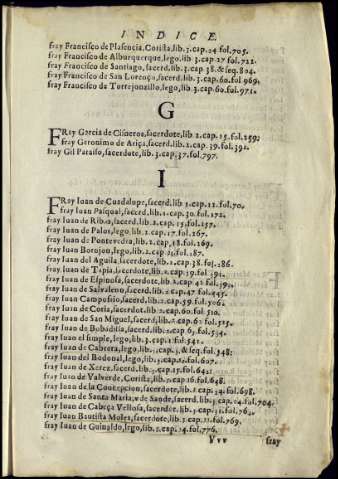 INDICE.
fray Francisco de Plasencia, Corista, lib. 3. cap. 24 fol. 705.
fray Francisco de Alburquerque, lego, lib. 3. cap. 27 fol. 722.
fray Francisco de Santiago, sacerd. lib. 3. cap. 38. & seq. 804.
fray Francisco de San Lorenço, sacerd. lib. 3. cap. 60. fol. 969.
fray Francisco de Torrejonzillo, lego, lib. 3. cap. 60. fol. 971.
G
FRay Garcia de Cisneros, sacerdote, lib. 2. cap. 15. fol. 259.
fray Geronimo de Ariça, sacerd. lib. 2. cap. 39. fol. 391.
fray Gil Paraiso, sacerdote, lib. 3. cap. 37. fol. 797.
I
FRay Iuan de Guadalupe, sacerd. lib. 1. cap. 12. fol. 70.
fray Iuan Pasqual, sacerd. lib. 1. cap. 30. fol. 172.
fray Iuan de Ribas, sacerd. lib. 2. cap. 15. fol. 257.
fray Iuan de Palos, lego, lib. 2. cap. 17. fol. 267.
fray Iuan de Pontevedra, lib. 2. cap. 18. fol. 269.
fray Iuan Borujon, lego, lib. 2. cap. fol. 287.
fray Iuan del Aguila, sacerdote, lib. 2. cap. 38. fol. 386.
fray Iuan de Tapia, sacerdote, lib. 2. cap. 39. fol. 391.
fray Iuan de Espinosa, sacerdote, lib. 2. cap. 42 fol.
fray Iuan de Salvaleon, sacerd. lib. 2. cap. 47. fol. 445.
fray Iuan Camposrio, sacerd. lib. 2. cap. 59. fol. 506.
fray Iuan de Coria, sacerdot. lib. 2. cap. 60. fol. 510.
fray Iuan de San Miguel, sacerd. lib. 2. cap. 61. fol. 515.
fray Iuan de Bobadilla, sacerd. lib. 2. cap. fol. 534.
fray Iuan el simple, lego, lib. 3. cap. 1. fol. 541.
fray Iuan de Cabrera, lego, lib. cap. & seq. fol. 548.
fray Iuan del Bodonal, lego, lib. 3. cap. fol. 607.
fray Iuan de Xerez, sacerd. lib. 3. cap. 15. fol. 642.
fray Iuan de Valverde, Corista, lib. 3. cap. 16. fol. 648.
fray Iuan de la Concepcion, sacerdote, lib. 3. cap. 24. fol. 698.
fray Iuan de Santa Maria, v de Sande, sacerd. lib. 3. cap. 24. fol. 704.
fray Iuan de Cabeça Vellosa, sacerdote, lib. 3. cap. fol. 762.
fray Iuan Bautista Moles, sacerdote, lib. 3. cap. fol. 769.
fray Iuan de Guinaldo, lego, lib. 3. cap. 34. fol. 776.
Vvv fray